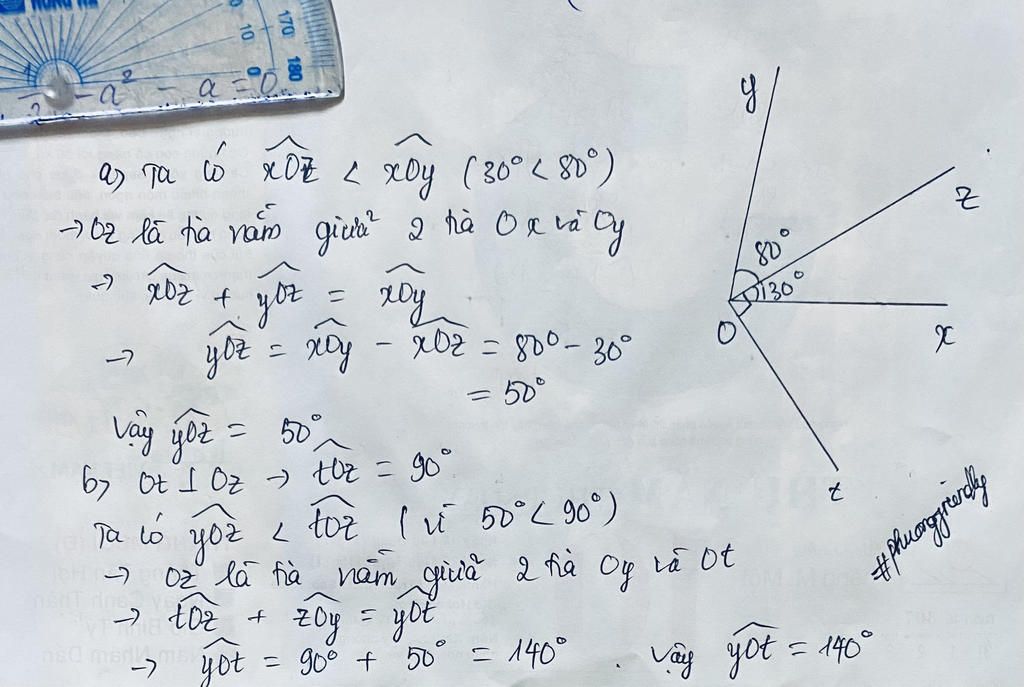 170
10
180
0
- a² - a = 0
a, Ta có xOz < xOy (30° < 80°)
→ Oz là tia nằm giữa 2 tia Ox và Oy
→ xOz + yOz = xOy
→ yOz = xOy - xOz = 80° - 30°
= 50°
Vậy yOz = 50°
b, Ot ⊥ Oz → tOz = 90°
Ta có yOz < tOz (vì 50° < 90°)
→ Oz là tia nằm giữa 2 tia Oy và Ot
→ tOz + zOy = yOt
→ yOt = 90° + 50° = 140°. Vậy yOt = 140°
y
z
80°
30°
O
x
t
#phuongfriendly